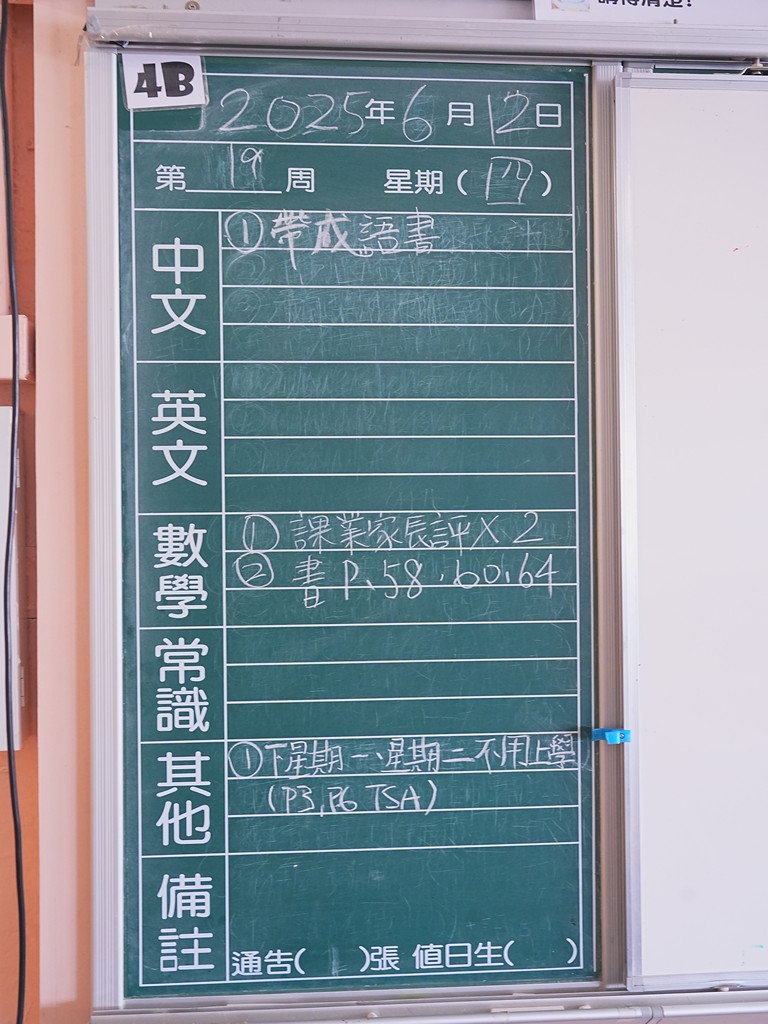 講得清楚!
4B
2025年6月12日
第19周 星期(四)
中文
①帶成語書
英文
數學
① 課業家長評X2
② 書P、58.60.64
常識
其他
①下星期一、星期二不用上學
(P3,P6 TSA)
備註
通告( )張 值日生( )